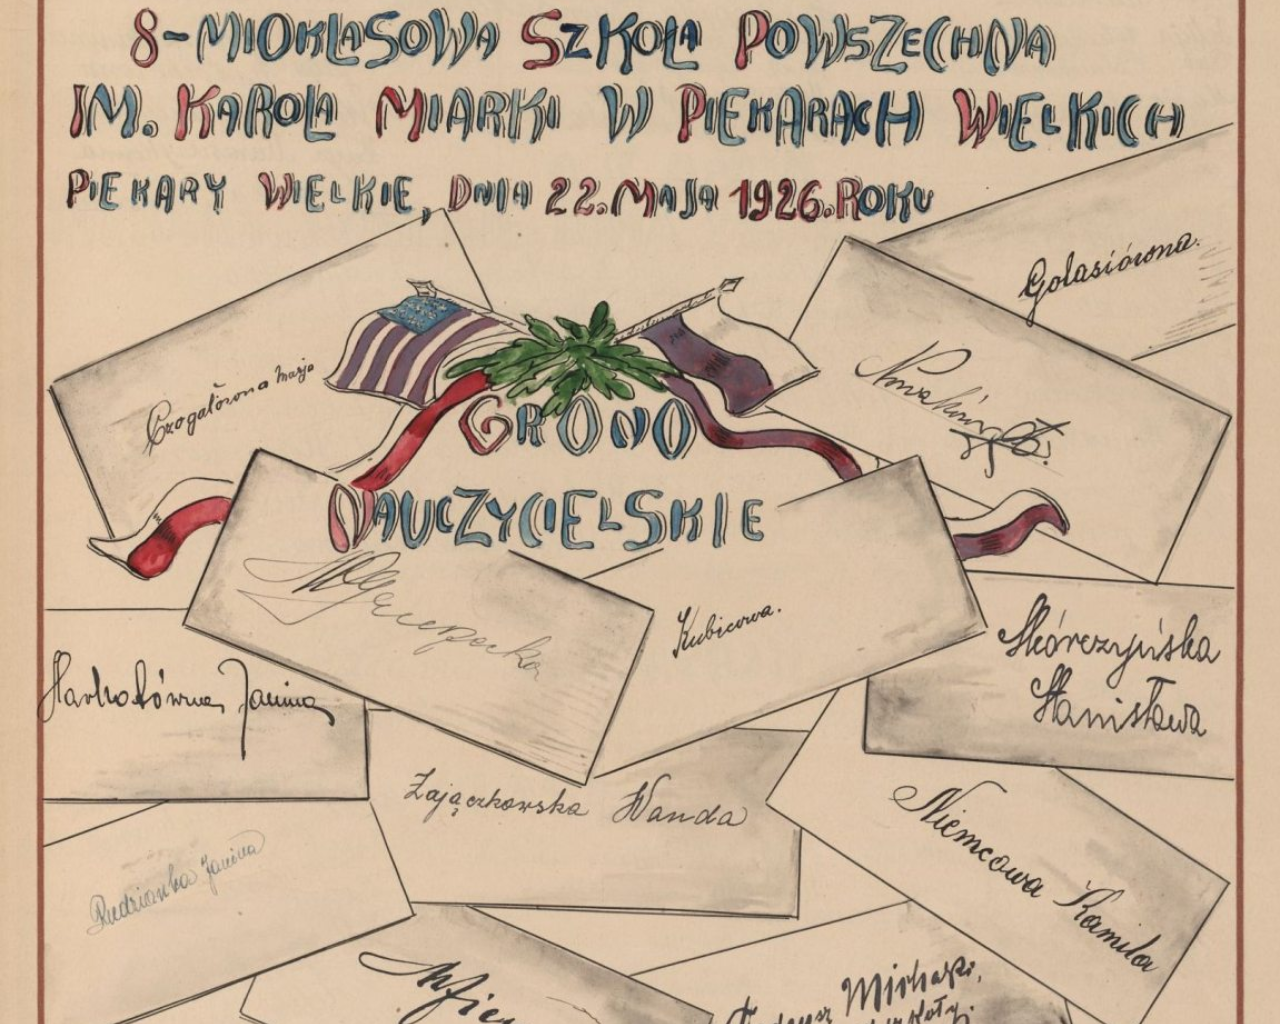 8-MIOKLASOWA SZKOŁA POWSZECHNA
IM. KAROLA MIARKI W PIEKARACH WIELKICH
PIEKARY WIELKIE, DNIA 22. MAJA 1926. ROKU
Golasiówna.
Czogałówna Marja
Nowakówna
GRONO
NAUCZYCIELSKIE
Kubicowa.
Skórczyńska
Stanisława
Janina
Zajączkowska Wanda
Niemcowa Kamila
Rudzianka Janina
Michalski,